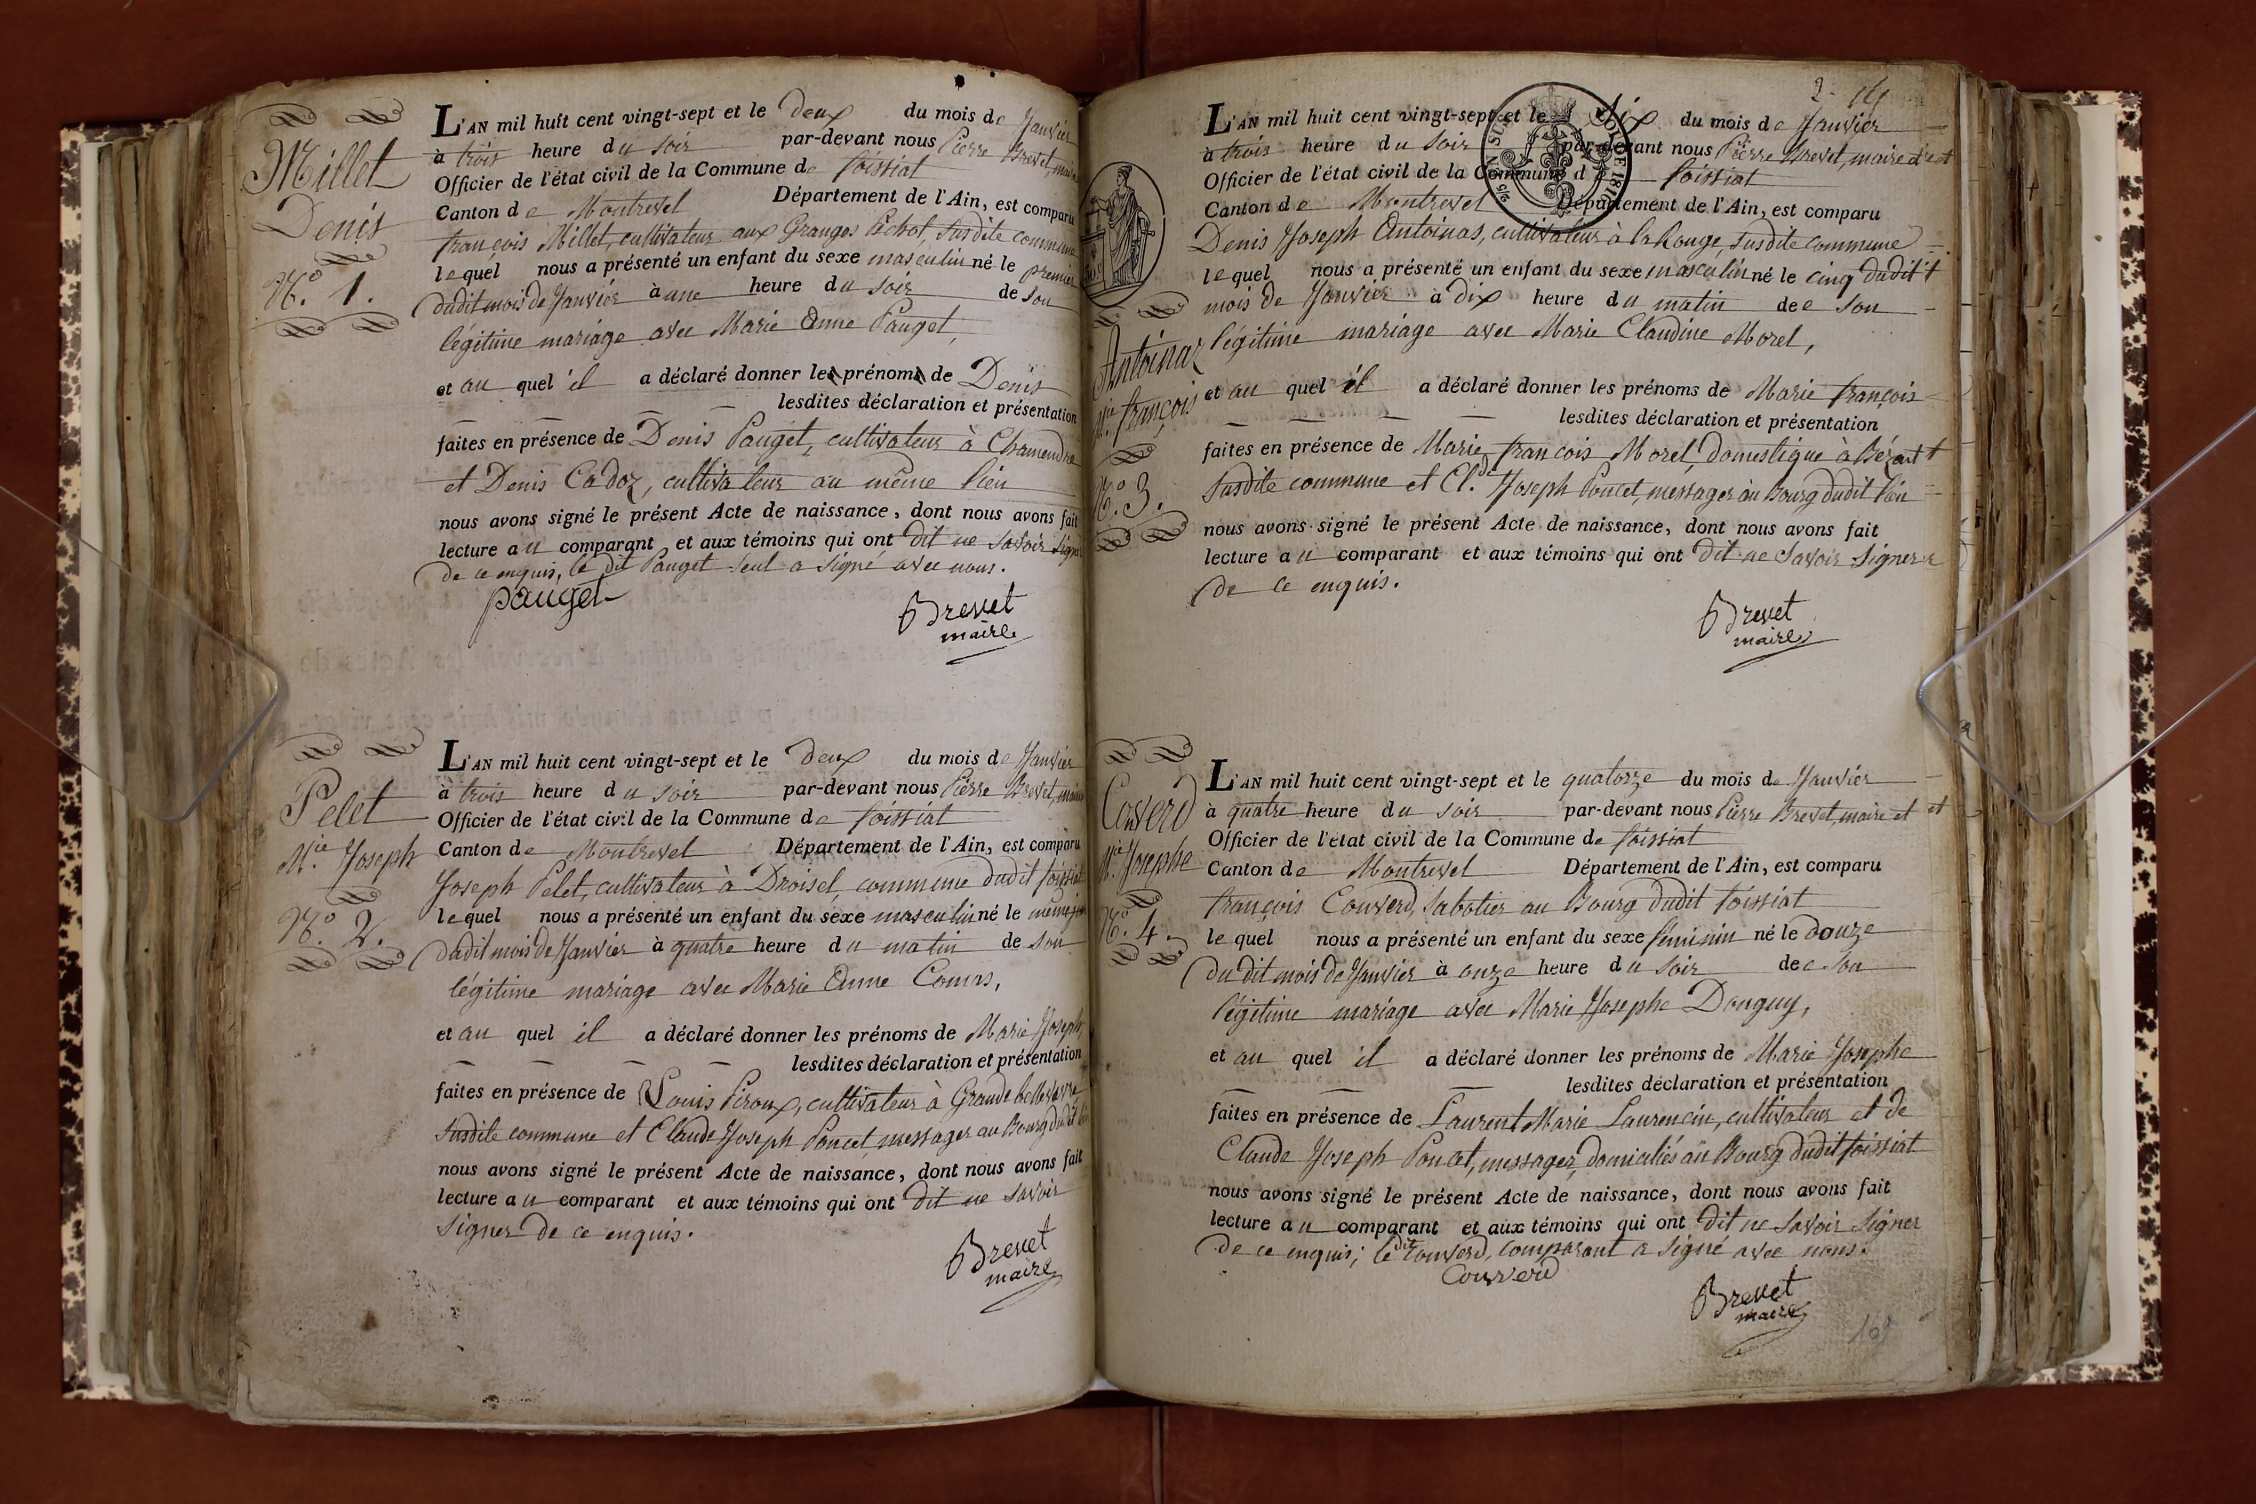 Millet
Denis
N.o 1.
L'AN mil huit cent vingt-sept et le deux du mois de Janvier
à trois heure du soir par-devant nous Pierre Brevet, maire
Officier de l'état civil de la Commune de foissiat
Canton de Montrevel Département de l'Ain, est comparu
françois Millet, cultivateur aux Granges Pichot, susdite commune
lequel nous a présenté un enfant du sexe masculin né le premier
dudit mois de Janvier à une heure du soir de son
légitime mariage avec Marie Anne Pauget,
et au quel il a déclaré donner les prénoms de Denis
lesdites déclaration et présentation
faites en présence de Denis Pauget, cultivateur à Chamendre
et Denis Cadoz, cultivateur au même lieu
nous avons signé le présent Acte de naissance, dont nous avons fait
lecture au comparant et aux témoins qui ont dit ne savoir signer
de ce enquis, le dit Pauget seul a signé avec nous.
pauget
Brevet
maire
Pelet
M.ie Joseph
N.o 2.
L'AN mil huit cent vingt-sept et le deux du mois de Janvier
à trois heure du soir par-devant nous Pierre Brevet, maire
Officier de l'état civil de la Commune de foissiat
Canton de Montrevel Département de l'Ain, est comparu
Joseph Pelet, cultivateur à Droisel, commune dudit foissiat
lequel nous a présenté un enfant du sexe masculin né le même jour
dudit mois de Janvier à quatre heure du matin de son
légitime mariage avec Marie Anne Comas,
et au quel il a déclaré donner les prénoms de Marie Joseph
lesdites déclaration et présentation
faites en présence de Louis Piroux, cultivateur à Grande bellevavre
susdite commune et Claude Joseph Poncet, messager au Bourg dudit lieu
nous avons signé le présent Acte de naissance, dont nous avons fait
lecture au comparant et aux témoins qui ont dit ne savoir
signer de ce enquis.
Brevet
maire
2. 
Antoinaz
M.ie françois
N.o 3.
L'AN mil huit cent vingt-sept et le six du mois de Janvier
à trois heure du soir par-devant nous Pierre Brevet, maire et
Officier de l'état civil de la Commune de foissiat
Canton de Montrevel Département de l'Ain, est comparu
Denis Joseph Antoinas, cultivateur à la Rouge, susdite commune
lequel nous a présenté un enfant du sexe masculin né le cinq dudit
mois de Janvier à dix heure du matin de son
légitime mariage avec Marie Claudine Morel,
et au quel il a déclaré donner les prénoms de Marie françois
lesdites déclaration et présentation
faites en présence de Marie françois Morel, domestique à
susdite commune et Cl.de Joseph Poncet, messager au Bourg dudit lieu
nous avons signé le présent Acte de naissance, dont nous avons fait
lecture au comparant et aux témoins qui ont dit ne savoir signer
de ce enquis.
Brevet
maire
Couverd
M.ie Josephe
N.o 4.
L'AN mil huit cent vingt-sept et le quatorze du mois de Janvier
à quatre heure du soir par-devant nous Pierre Brevet, maire et
Officier de l'état civil de la Commune de foissiat
Canton de Montrevel Département de l'Ain, est comparu
françois Couverd, sabotier au Bourg dudit foissiat
lequel nous a présenté un enfant du sexe féminin né le douze
du dit mois de Janvier à onze heure du soir de son
légitime mariage avec Marie Josephe Donguy,
et au quel il a déclaré donner les prénoms de Marie Josephe
lesdites déclaration et présentation
faites en présence de Laurent Marie Laurencin, cultivateur et de
Claude Joseph Poncet, messager, domiciliés au Bourg dudit foissiat
nous avons signé le présent Acte de naissance, dont nous avons fait
lecture au comparant et aux témoins qui ont dit ne savoir signer
de ce enquis; le dit Couverd, comparant a signé avec nous.
Couverd
Brevet
maire